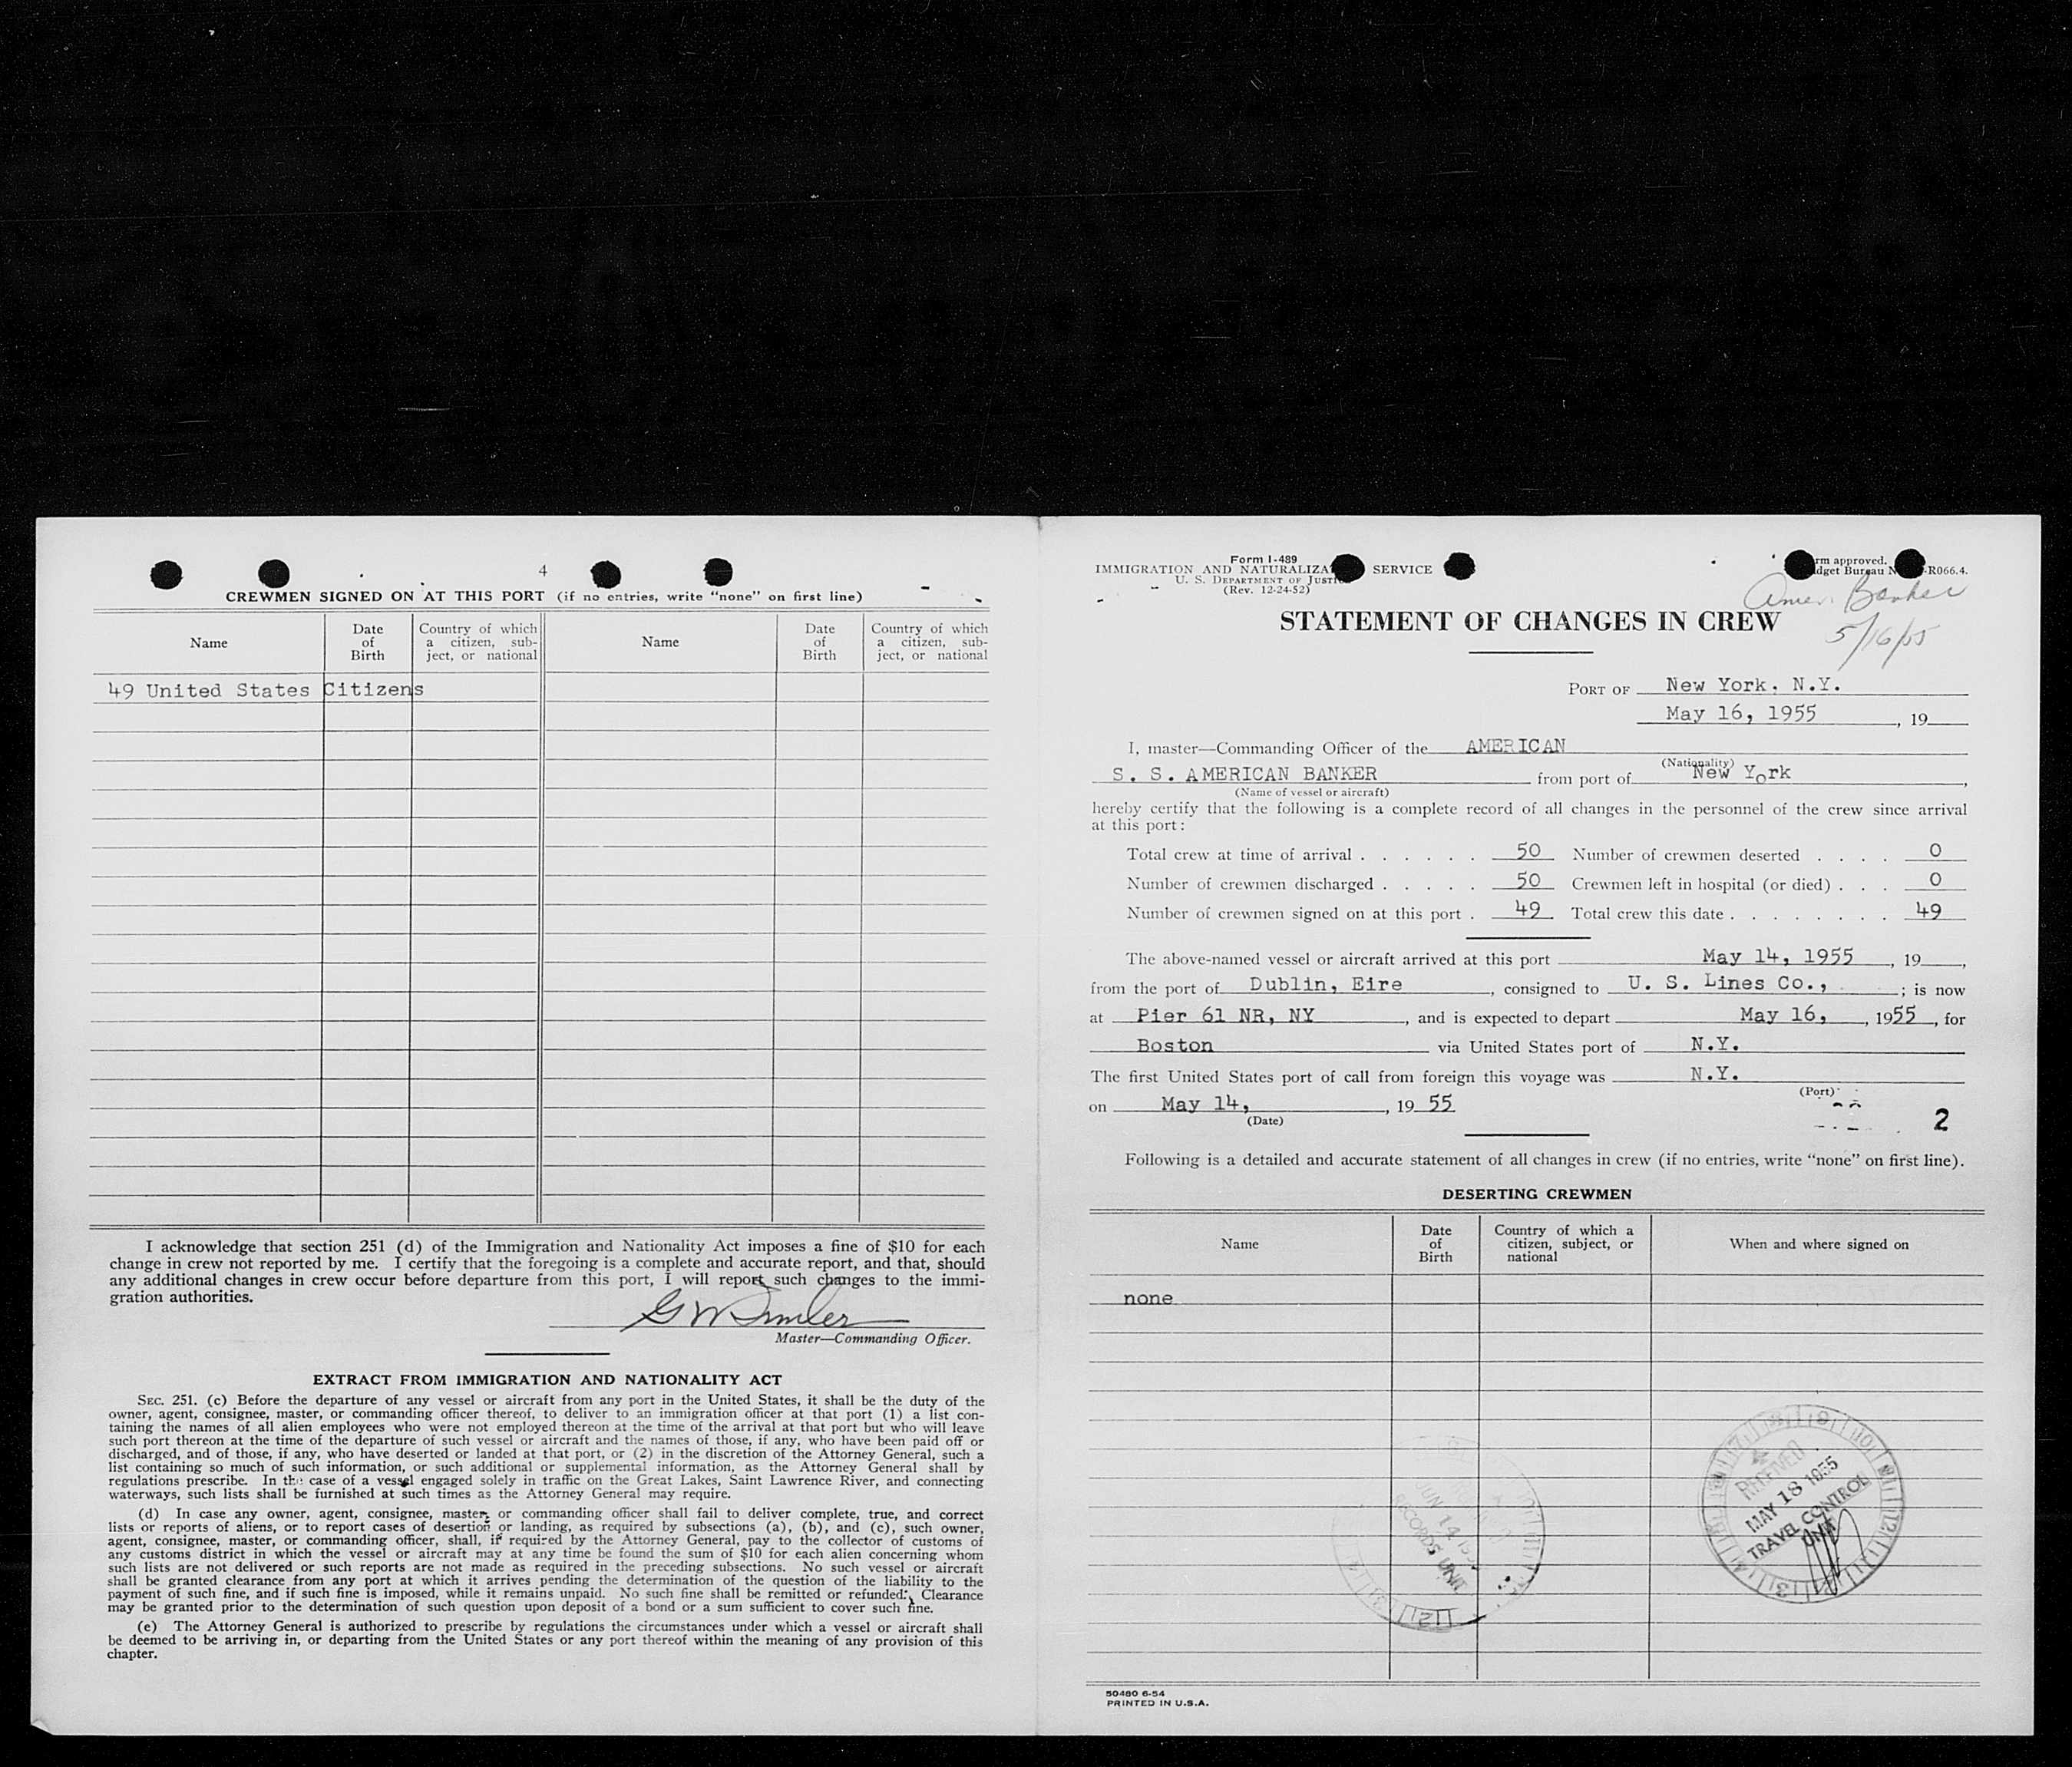 4
CREWMEN SIGNED ON AT THIS PORT (if no entries, write "none" on first line)
Name
Date of Birth
Country of which a citizen, sub-
ject, or national
Name
Date of Birth
Country of which a citizen, sub-
ject, or national
49 United States Citizens
I acknowledge that section 251 (d) of the Immigration and Nationality Act imposes a fine of $10 for each
change in crew not reported by me. I certify that the foregoing is a complete and accurate report, and that, should
any additional changes in crew occur before departure from this port, I will report such changes to the immi-
gration authorities.
Master—Commanding Officer.
EXTRACT FROM IMMIGRATION AND NATIONALITY ACT
SEC. 251. (c) Before the departure of any vessel or aircraft from any port in the United States, it shall be the duty of the
owner, agent, consignee, master, or commanding officer thereof, to deliver to an immigration officer at that port (1) a list con-
taining the names of all alien employees who were not employed thereon at the time of the arrival at that port but who will leave
such port thereon at the time of the departure of such vessel or aircraft and the names of those, if any, who have been paid off or
discharged, and of those, if any, who have deserted or landed at that port, or (2) in the discretion of the Attorney General, such a
list containing so much of such information, or such additional or supplemental information, as the Attorney General shall by
regulations prescribe. In the case of a vessel engaged solely in traffic on the Great Lakes, Saint Lawrence River, and connecting
waterways, such lists shall be furnished at such times as the Attorney General may require.
(d) In case any owner, agent, consignee, master, or commanding officer shall fail to deliver complete, true, and correct
lists or reports of aliens, or to report cases of desertion or landing, as required by subsections (a), (b), and (c), such owner,
agent, consignee, master, or commanding officer, shall, if required by the Attorney General, pay to the collector of customs of
any customs district in which the vessel or aircraft may at any time be found the sum of $10 for each alien concerning whom
such lists are not delivered or such reports are not made as required in the preceding subsections. No such vessel or aircraft
shall be granted clearance from any port at which it arrives pending the determination of the question of the liability to the
payment of such fine, and if such fine is imposed, while it remains unpaid. No such fine shall be remitted or refunded. Clearance
may be granted prior to the determination of such question upon deposit of a bond or a sum sufficient to cover such fine.
(e) The Attorney General is authorized to prescribe by regulations the circumstances under which a vessel or aircraft shall
be deemed to be arriving in, or departing from the United States or any port thereof within the meaning of any provision of this
chapter.
Form I-489
IMMIGRATION AND NATURALIZA SERVICE
U. S. DEPARTMENT OF JUSTI
(Rev. 12-24-52)
rm approved.
dget Bureau N -R066.4.
Amer. Banker
5/16/55
STATEMENT OF CHANGES IN CREW
PORT OF New York, N.Y.
May 16, 1955, 19
I, master—Commanding Officer of the AMERICAN
(Nationality)
S. S. AMERICAN BANKER from port of New York,
(Name of vessel or aircraft)
hereby certify that the following is a complete record of all changes in the personnel of the crew since arrival
at this port:
Total crew at time of arrival . . . . . . 50 Number of crewmen deserted . . . . 0
Number of crewmen discharged . . . . . 50 Crewmen left in hospital (or died) . . . 0
Number of crewmen signed on at this port . 49 Total crew this date . . . . . . . . 49
The above-named vessel or aircraft arrived at this port May 14, 1955, 19 ,
from the port of Dublin, Eire, consigned to U. S. Lines Co., ; is now
at Pier 61 NR, NY, and is expected to depart May 16, , 1955, for
Boston via United States port of N.Y.
The first United States port of call from foreign this voyage was N.Y.
(Port)
on May 14, , 19 55
(Date)
2
Following is a detailed and accurate statement of all changes in crew (if no entries, write "none" on first line).
DESERTING CREWMEN
Name
Date of Birth
Country of which a citizen, subject, or national
When and where signed on
none
JUN 14
RECORDS UNIT
RECEIVED
MAY 18 1955
TRAVEL CONTROL
UNIT
50480 6-54
PRINTED IN U.S.A.